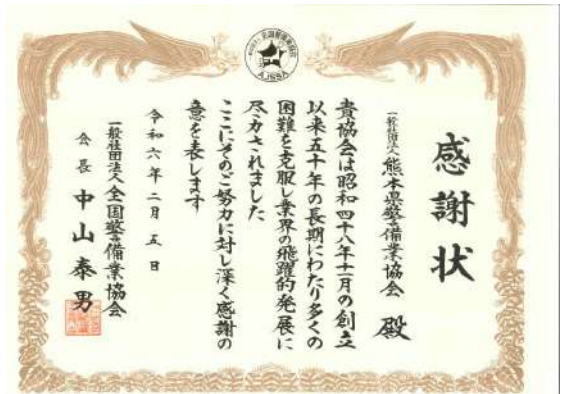 感謝状
一般社団法人 熊本県警備業協会 殿
貴協会は昭和四十八年十一月の創立
以来五十年の長期にわたり多くの
困難を克服し業界の飛躍的発展に
尽力されました
ここにそのご努力に対し深く感謝の
意を表します
令和六年二月五日
一般社団法人 全国警備業協会
会長 中山泰男
AJSSA